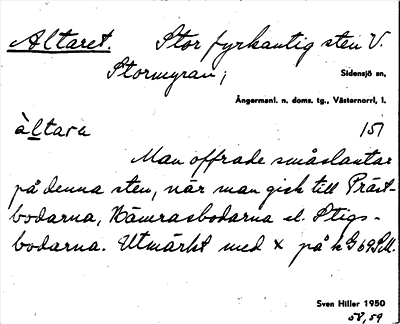 Altaret. Stor fyrkantig sten V.
Stormyran;
Sidensjö sn,
Ångermanl. n. doms. tg., Västernorrl, l.
àltara 151
Man offrade småslantar
på denna sten, när man gick till Präst-
bodarna, Nämrasbodarna el. Stigs-
bodarna. Utmärkt med x på k G 69
Sven Hiller 1950
58,59